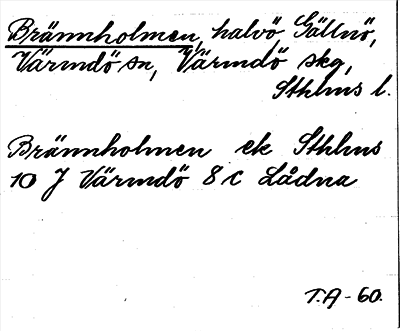 Brännholmen, halvö, Gällnö,
Värmdö sn, Värmdö skg,
Sthlms l.
Brännholmen ek Sthlms
10 J Värmdö 8 c Lådna
T.A-60.